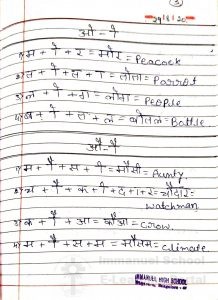 29/8/20
ओ - ो
1) म + ो + र = मोर = Peacock
2) त + ो + त + ा = तोता = Parrot
3) ल + ो + ग = लोग = People
4) ब + ो + त + ल = बोतल = Bottle.
औ - ौ
1) म + ौ + स + ी = मौसी = Aunty.
watchman
3) क + ौ + आ = कौआ = Crow.
4) म + ौ + स + म = मौसम = climate.
IMMANUEL HIGH SCHOOL